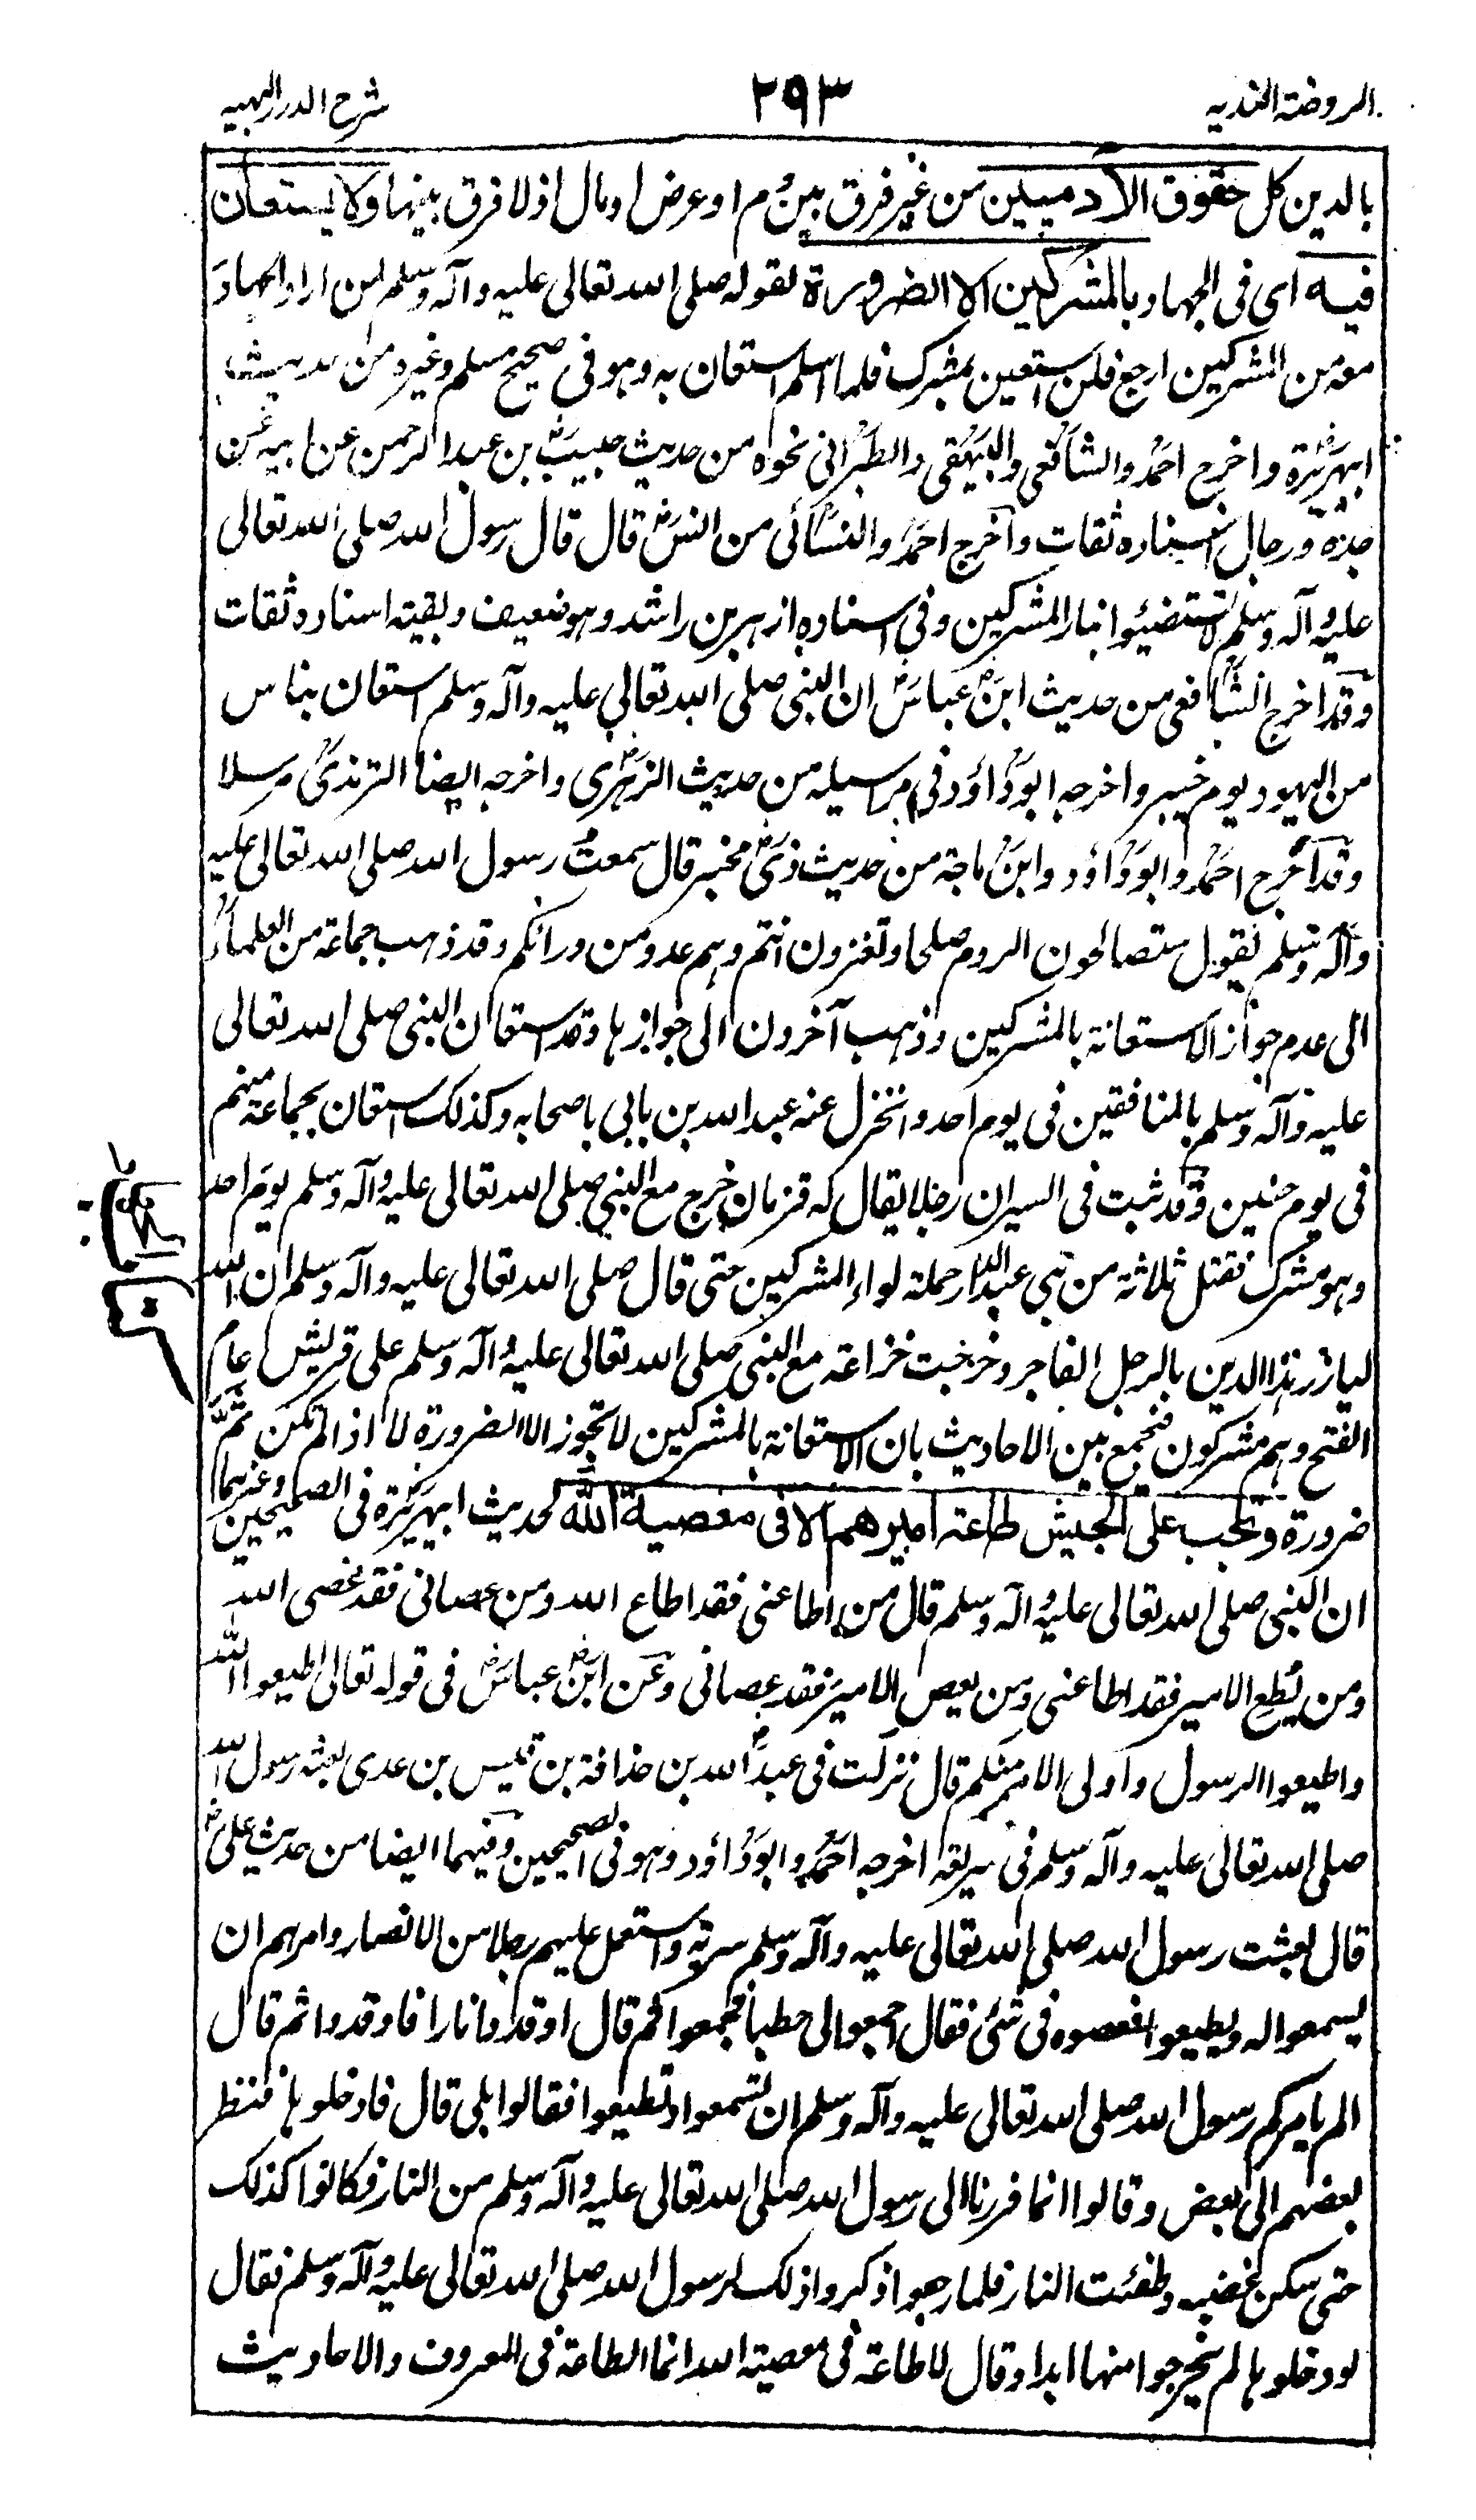 الروضة الندية
٢٩٣
شرح الدرر البهية
بالدين كل حقوق الآدميين من غير فرق بين دم او عرض او مال اذ لا فرق بينها ولا يستعان
فيه اى فى الجهاد بالمشركين الا لضرورة لقوله صلى الله تعالى عليه وآله وسلم لمن اراد الجهاد
معه من المشركين ارجع فلن استعين بمشرك فلما اسلم استعان به وهو فى صحيح مسلم وغيره من حديث
ابيهريرة واخرج احمد والشافعى والبيهقى والطبرانى نحوه من حديث حبيب بن عبدالرحمن عن ابيه عن
جده ورجال اسناده ثقات وأخرج احمد والنسائى من انس قال قال رسول الله صلى الله تعالى
عليه وآله وسلم لا تستضيئوا بنار المشركين وفى اسناده ازهر بن راشد وهو ضعيف وبقية اسناده ثقات
وقد اخرج الشافعى من حديث ابن عباس ان النبى صلى الله تعالى عليه وآله وسلم استعان بناس
من اليهود يوم خيبر واخرجه ابوداؤد فى مراسيله من حديث الزهرى واخرجه ايضا الترمذى مرسلا
وقد أخرج احمد وابوداؤد وابن ماجة من حديث ذى مخبر قال سمعت رسول الله صلى الله تعالى عليه
وآله وسلم يقول ستصالحون الروم صلحا وتغزون انتم وهم عدوا من ورائكم وقد ذهب جماعة من العلماء
الى عدم جواز الاستعانة بالمشركين وذهب آخرون الى جوازها وقد استعان النبى صلى الله تعالى
عليه وآله وسلم بالمنافقين فى يوم احد وانخزل عنه عبدالله بن ابى باصحابه وكذلك استعان بجماعة منهم
فى يوم حنين وقد ثبت فى السير ان رجلا يقال له قزمان خرج مع النبى صلى الله تعالى عليه وآله وسلم يوم احد
وهو مشرك فقتل ثلاثة من بنى عبدالدار حملة لواء المشركين حتى قال صلى الله تعالى عليه وآله وسلم ان الله
ليازر هذا الدين بالرجل الفاجر وخرجت خزاعة مع النبى صلى الله تعالى عليه وآله وسلم على قريش عام
الفتح وهم مشركون فيجمع بين الاحاديث بان الاستعانة بالمشركين لا تجوز الا لضرورة لا اذا لم تكن ثمَّ
ضرورة وتجب على الجيش طاعة اميرهم الا فى معصية الله لحديث ابيهريرة فى الصحيحين وغيرهما
ان النبى صلى الله تعالى عليه وآله وسلم قال من اطاعنى فقد اطاع الله ومن عصانى فقد عصى الله
ومن يطع الامير فقد اطاعنى ومن يعص الامير فقد عصانى وعن ابن عباس فى قوله تعالى اطيعوا الله
واطيعوا الرسول واولى الامر منكم قال نزلت فى عبدالله بن حذافة بن قيس بن عدى بعثه رسول الله
صلى الله تعالى عليه وآله وسلم فى سرية اخرجه احمد وابوداؤد وهو فى الصحيحين وفيهما ايضا من حديث على
قال بعث رسول الله صلى الله تعالى عليه وآله وسلم سرية واستعمل عليهم رجلا من الانصار وامرهم ان
يسمعوا له ويطيعوا فعصوه فى شئ فقال اجمعوا لى حطبا فجمعوا ثم قال اوقدوا نارا فاوقدوا ثم قال
الم يامركم رسول الله صلى الله تعالى عليه وآله وسلم ان تسمعوا وتطيعوا فقالوا بلى قال فادخلوها فنظر
بعضهم الى بعض وقالوا انما فررنا الى رسول الله صلى الله تعالى عليه وآله وسلم من النار فكانوا كذلك
حتى سكن غضبه وطفئت النار فلما رجعوا ذكروا ذلك لرسول الله صلى الله تعالى عليه وآله وسلم فقال
لو دخلوها لم يخرجوا منها ابدا وقال لا طاعة فى معصية الله انما الطاعة فى المعروف والاحاديث